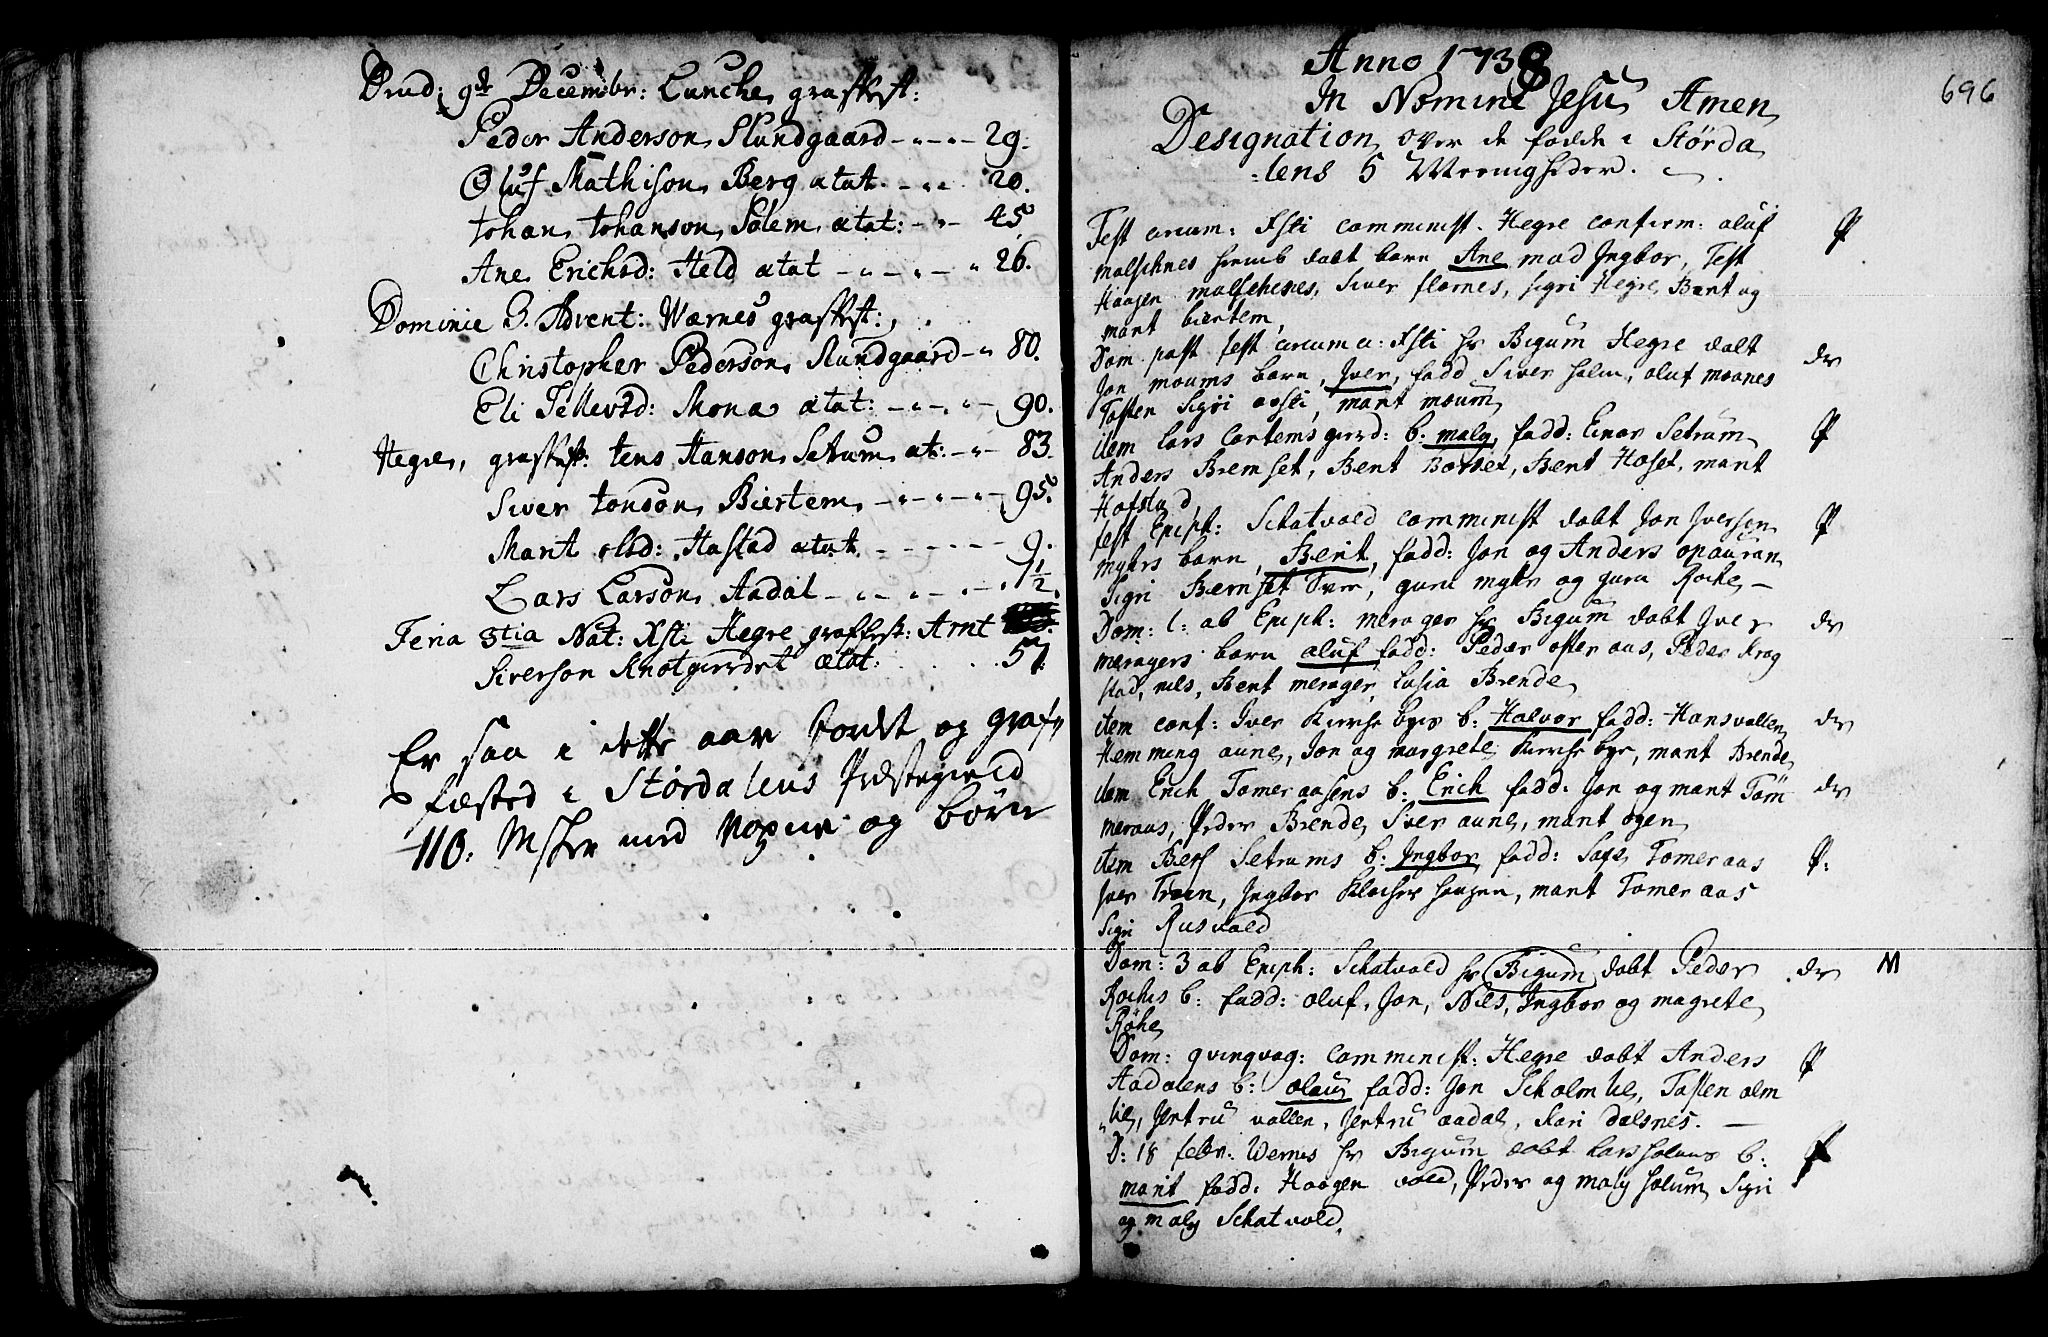 Dnd: 9de Decembr: Lunche, graffest:
Peder Anderson, Slundgaard 29.
Oluf Mathison, Berg ætat. 20.
Johan Johanson, Solem, ætat: 45
Ane Erichsd: Held ætat 26.
Dominic 3. Advent: Wærnes graffest:
Christopher Pederson, Rundgaard 80.
Eli Tellevsd: Mona ætat: 90.
Hegre, graffest: Jens Hanson, Setum, æt: 83.
Siver Jonson, Biertem, 95.
Marit olsd: Hastad ætat. 9.
Lars Larson, Aadal 1 1/2.
Feria 3tia Nat: Xsti Hegre graffest: Arnt
Siverson Knotgierdet ætat: 57.
Er saa i dette aar fordt og graf
fæsted i Størdalens Præstegield
110. Msker med voxne og børn
Anno 1738
696
In Nomine Jesu, Amen,
Designation, over de fødde i Størda
lens 5 Meenigheder.
Fest circum: Xsti comminist. Hegre confirm: oluf
malschnes hiemb døbt barn Ane mod Ingbor, Test P
Haagen malschenes, Siver flornes, sigri Hegre, Berit og
marit biertem,
Dom post fest circum: Xsti hr Bigum Hegre døbt dr
Jon moums barn, Iver, fadd Siver holm, oluf moones
Tosten Sigri, marit moum,
item Lars gierd: b: maly, fadd: Einar Setrum, P
Anders Bremset, Bent, Berit Hoset, marit
Hofstad,
fest Epiph: Schatvold comminist døbt Jon Iversen P
mykrs barn, Berit, fadd: Jon og Anders opauran
Sigri Bernset, guru mykr og guru Roche, —
Dom: 1: ab Epiph: meroger hr Bigum døbt Iver dr
merogers barn oluf fadd: Peder ofter aas, Peder Krog
stad, nils, Berit meroger, Lusia Brende,
item conf: Iver Kirche byes b: Halvor fadd: Hansvollen, dr
Hemming aune, Jon og margrete Kirche bye, marit Brende,
item Erich Tomeraasens b: Erich fadd: Jon og marit Tom dr
meraas, Peder Brende, Iver aune, marit ogen
item Bersi Setrums b: Ingbor fadd: Tomeraas P:
Iver Troen, Ingbor Klocher haugen, marit Tomeraas
Sigri Rusvold
Dom: 3 ab Epiph: Schatvold hr Bigum døbt Peder dr M
Roches b: fadd: oluf, Jon, Nils, Ingbor og magrete
Røke,
Dom: qvinqvag: comminist: Hegre døbt Anders P
Aadalens b: olau fadd: Jon Scholmlie, Tosten olm
lie, Jertru vollen, Jertru aadal, Kari Dalsnes. —
D: 18 febr: Wernes hr Bigum døbt Lars holums b:
marit fadd: Haagen vold, Peder og maly holum, Sigri
og maly Schatvold.